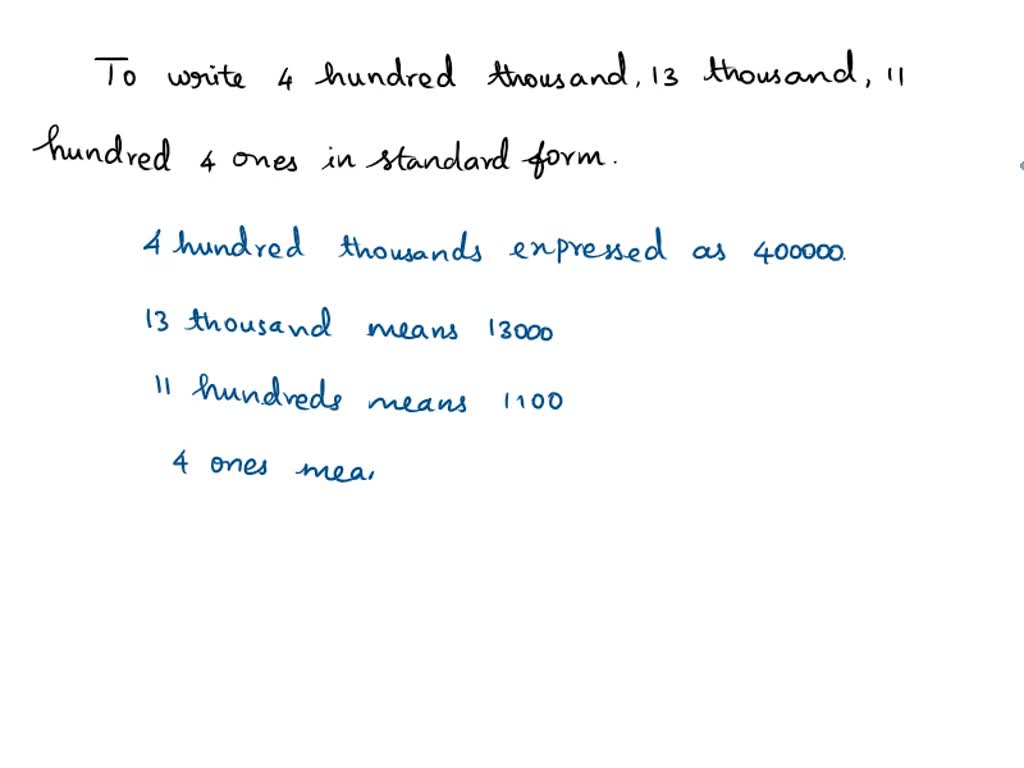 To write 4 hundred thousand, 13 thousand, 11
hundred 4 ones in standard form.
4 hundred thousands expressed as 400000.
13 thousand means 13000
11 hundreds means 1100
4 ones mea